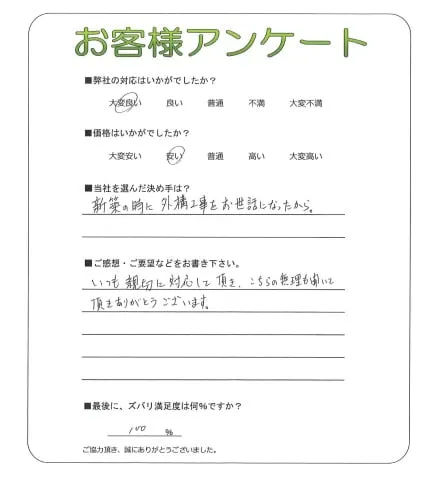 お客様アンケート
■弊社の対応はいかがでしたか？
大変良い　良い　普通　不満　大変不満
■価格はいかがでしたか？
大変安い　安い　普通　高い　大変高い
■当社を選んだ決め手は？
新築の時に 外構工事をお世話になったから。
■ご感想・ご要望などをお書き下さい。
いつも 親切に 対応して 頂き、こちらの無理も聞いて
頂きありがとうございます。
■最後に、ズバリ満足度は何％ですか？
100　％
ご協力頂き、誠にありがとうございました。